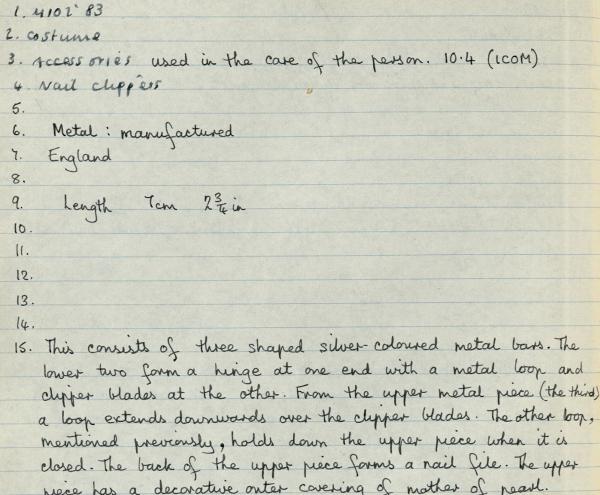 1. 4102'83
2. costume
3. Accessories used in the care of the person. 10.4 (ICOM)
4. Nail clippers
5.
6. Metal : manufactured
7. England
8.
9. Length 7cm 2 3/4 in
10.
11.
12.
13.
14.
15. This consists of three shaped silver-coloured metal bars. The
lower two form a hinge at one end with a metal loop and
clipper blades at the other. From the upper metal piece (the third)
a loop extends downwards over the clipper blades. The other loop,
mentioned previously, holds down the upper piece when it is
closed. The back of the upper piece forms a nail file. The upper
piece has a decorative outer covering of mother of pearl.